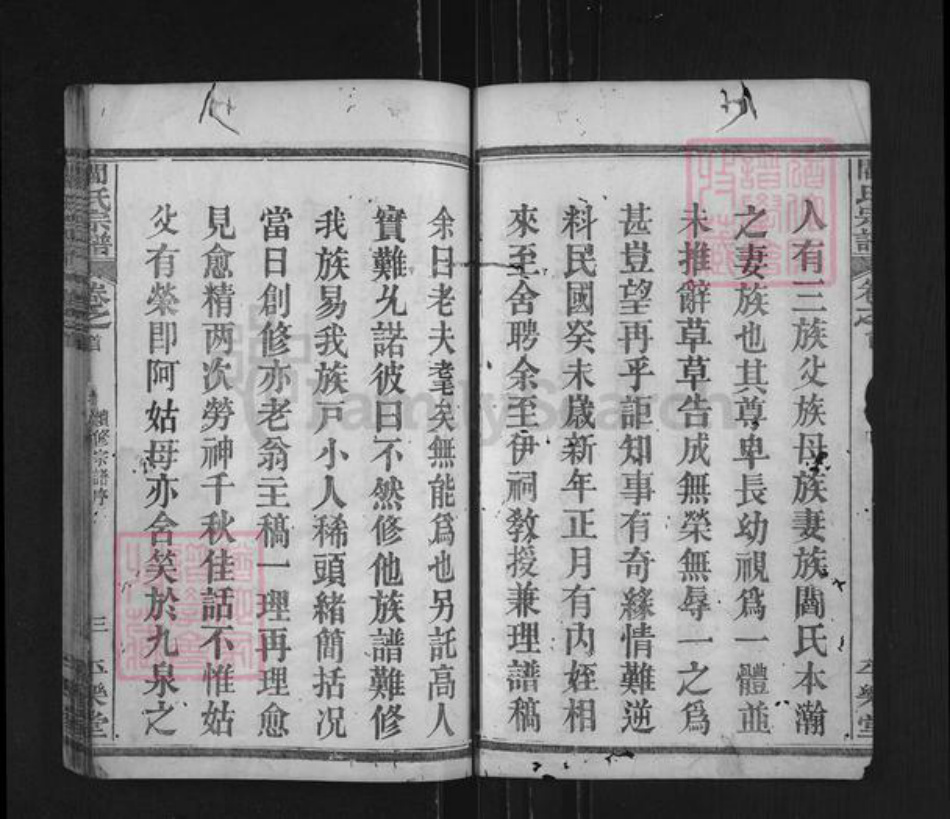 人有三族父族母族妻族閻氏本瀚
之妻族也其尊卑長幼視爲一體並
未推辭草草告成無榮無辱一之爲
甚豈望再乎詎知事有奇緣情難逆
料民國癸未歲新年正月有內姪相
來至舍聘余至伊祠教授兼理譜稿
余曰老夫耄矣無能爲也另託高人
實難允諾彼曰不然修他族譜難修
我族易我族戸小人稀頭緒簡括况
當日創修亦老翁主稿一理再理愈
見愈精两次勞神千秋佳話不惟姑
父有榮即阿姑母亦含笑於九泉之
閻氏宗譜
卷之首
續修宗譜序
三
樂堂